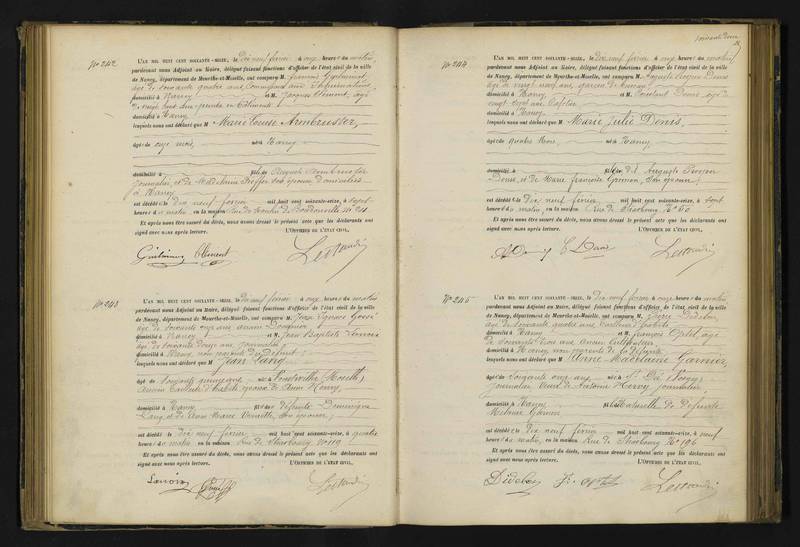 No 242
L'AN MIL HUIT CENT SOIXANTE-SEIZE, le dix neuf février à onze heures du matin
pardevant nous Adjoint au Maire, délégué faisant fonctions d'officier de l'état civil de la ville
de Nancy, département de Meurthe-et-Moselle, ont comparu M. François
âgé de soixante quatre ans, Commissaire aux Inhumations,
domicilié à Nancy et M. Jacques Clément, âgé
de vingt huit ans
domicilié à Nancy
lesquels nous ont déclaré que M Marie Louise Armbruster,
âgé de onze mois, né à Nancy
domicilié à fille de Auguste Armbruster
journalier, et de Madeleine son épouse domiciliés
à Nancy
est décédée le dix neuf février mil huit cent soixante-seize, à sept
heures du matin, en la maison Rue du de Boudonville No 24
Et après nous être assuré du décès, nous avons dressé le présent acte que les déclarants ont
signé avec nous après lecture. L'OFFICIER DE L'ÉTAT CIVIL,
Clément
No 243
L'AN MIL HUIT CENT SOIXANTE-SEIZE, le dix neuf février à onze heures du matin
pardevant nous Adjoint au Maire, délégué faisant fonctions d'officier de l'état civil de la ville
de Nancy, département de Meurthe-et-Moselle, ont comparu M. Jean
âgé de soixante onze ans, ancien
domicilié à Nancy et M. Jean Baptiste
âgé de soixante douze ans, journalier
domicilié à Nancy, non parents du défunt
lesquels nous ont déclaré que M Jean Lang
âgé de soixante quinze ans, né à (Moselle)
ancien tailleur d'habits époux de Anne Henry,
domicilié à Nancy fils de défunts Dominique
Lang et de Anne Marie son épouse,
est décédé le dix neuf février mil huit cent soixante-seize, à quatre
heures du matin, en la maison Rue de Strasbourg No 119
Et après nous être assuré du décès, nous avons dressé le présent acte que les déclarants ont
signé avec nous après lecture. L'OFFICIER DE L'ÉTAT CIVIL,
soixante deux
No 244
L'AN MIL HUIT CENT SOIXANTE-SEIZE, le dix neuf février à onze heures du matin
pardevant nous Adjoint au Maire, délégué faisant fonctions d'officier de l'état civil de la ville
de Nancy, département de Meurthe-et-Moselle, ont comparu M. Auguste Denis
âgé de vingt neuf ans, garçon de
domicilié à Nancy et M. Constant Denis, âgé de
vingt ans
domicilié à Nancy
lesquels nous ont déclaré que M Marie Julie Denis,
âgé de quatre mois, né à Nancy,
domicilié à fille dudit Auguste
Denis, et de Marie Françoise son épouse,
est décédée le dix neuf février mil huit cent soixante-seize, à sept
heures du matin, en la maison Rue de Strasbourg No 60
Et après nous être assuré du décès, nous avons dressé le présent acte que les déclarants ont
signé avec nous après lecture. L'OFFICIER DE L'ÉTAT CIVIL,
No 245
L'AN MIL HUIT CENT SOIXANTE-SEIZE, le dix neuf février à onze heures du matin
pardevant nous Adjoint au Maire, délégué faisant fonctions d'officier de l'état civil de la ville
de Nancy, département de Meurthe-et-Moselle, ont comparu M. Pierre Didelon,
âgé de soixante quatre ans, tailleur d'habits
domicilié à Nancy et M. François âgé
de soixante dix ans, ancien cultivateur
domicilié à Nancy, non parents de la défunte
lesquels nous ont déclaré que M Anne Madelaine Garnier,
âgé de soixante onze ans, né à St Dié (Vosges)
journalière Veuve de Antoine Henry,
domicilié à Nancy fille naturelle de défunte
Melanie Garnier
est décédée le dix neuf février mil huit cent soixante-seize, à neuf
heures du matin, en la maison Rue de Strasbourg No 196
Et après nous être assuré du décès, nous avons dressé le présent acte que les déclarants ont
signé avec nous après lecture. L'OFFICIER DE L'ÉTAT CIVIL,
Didelon